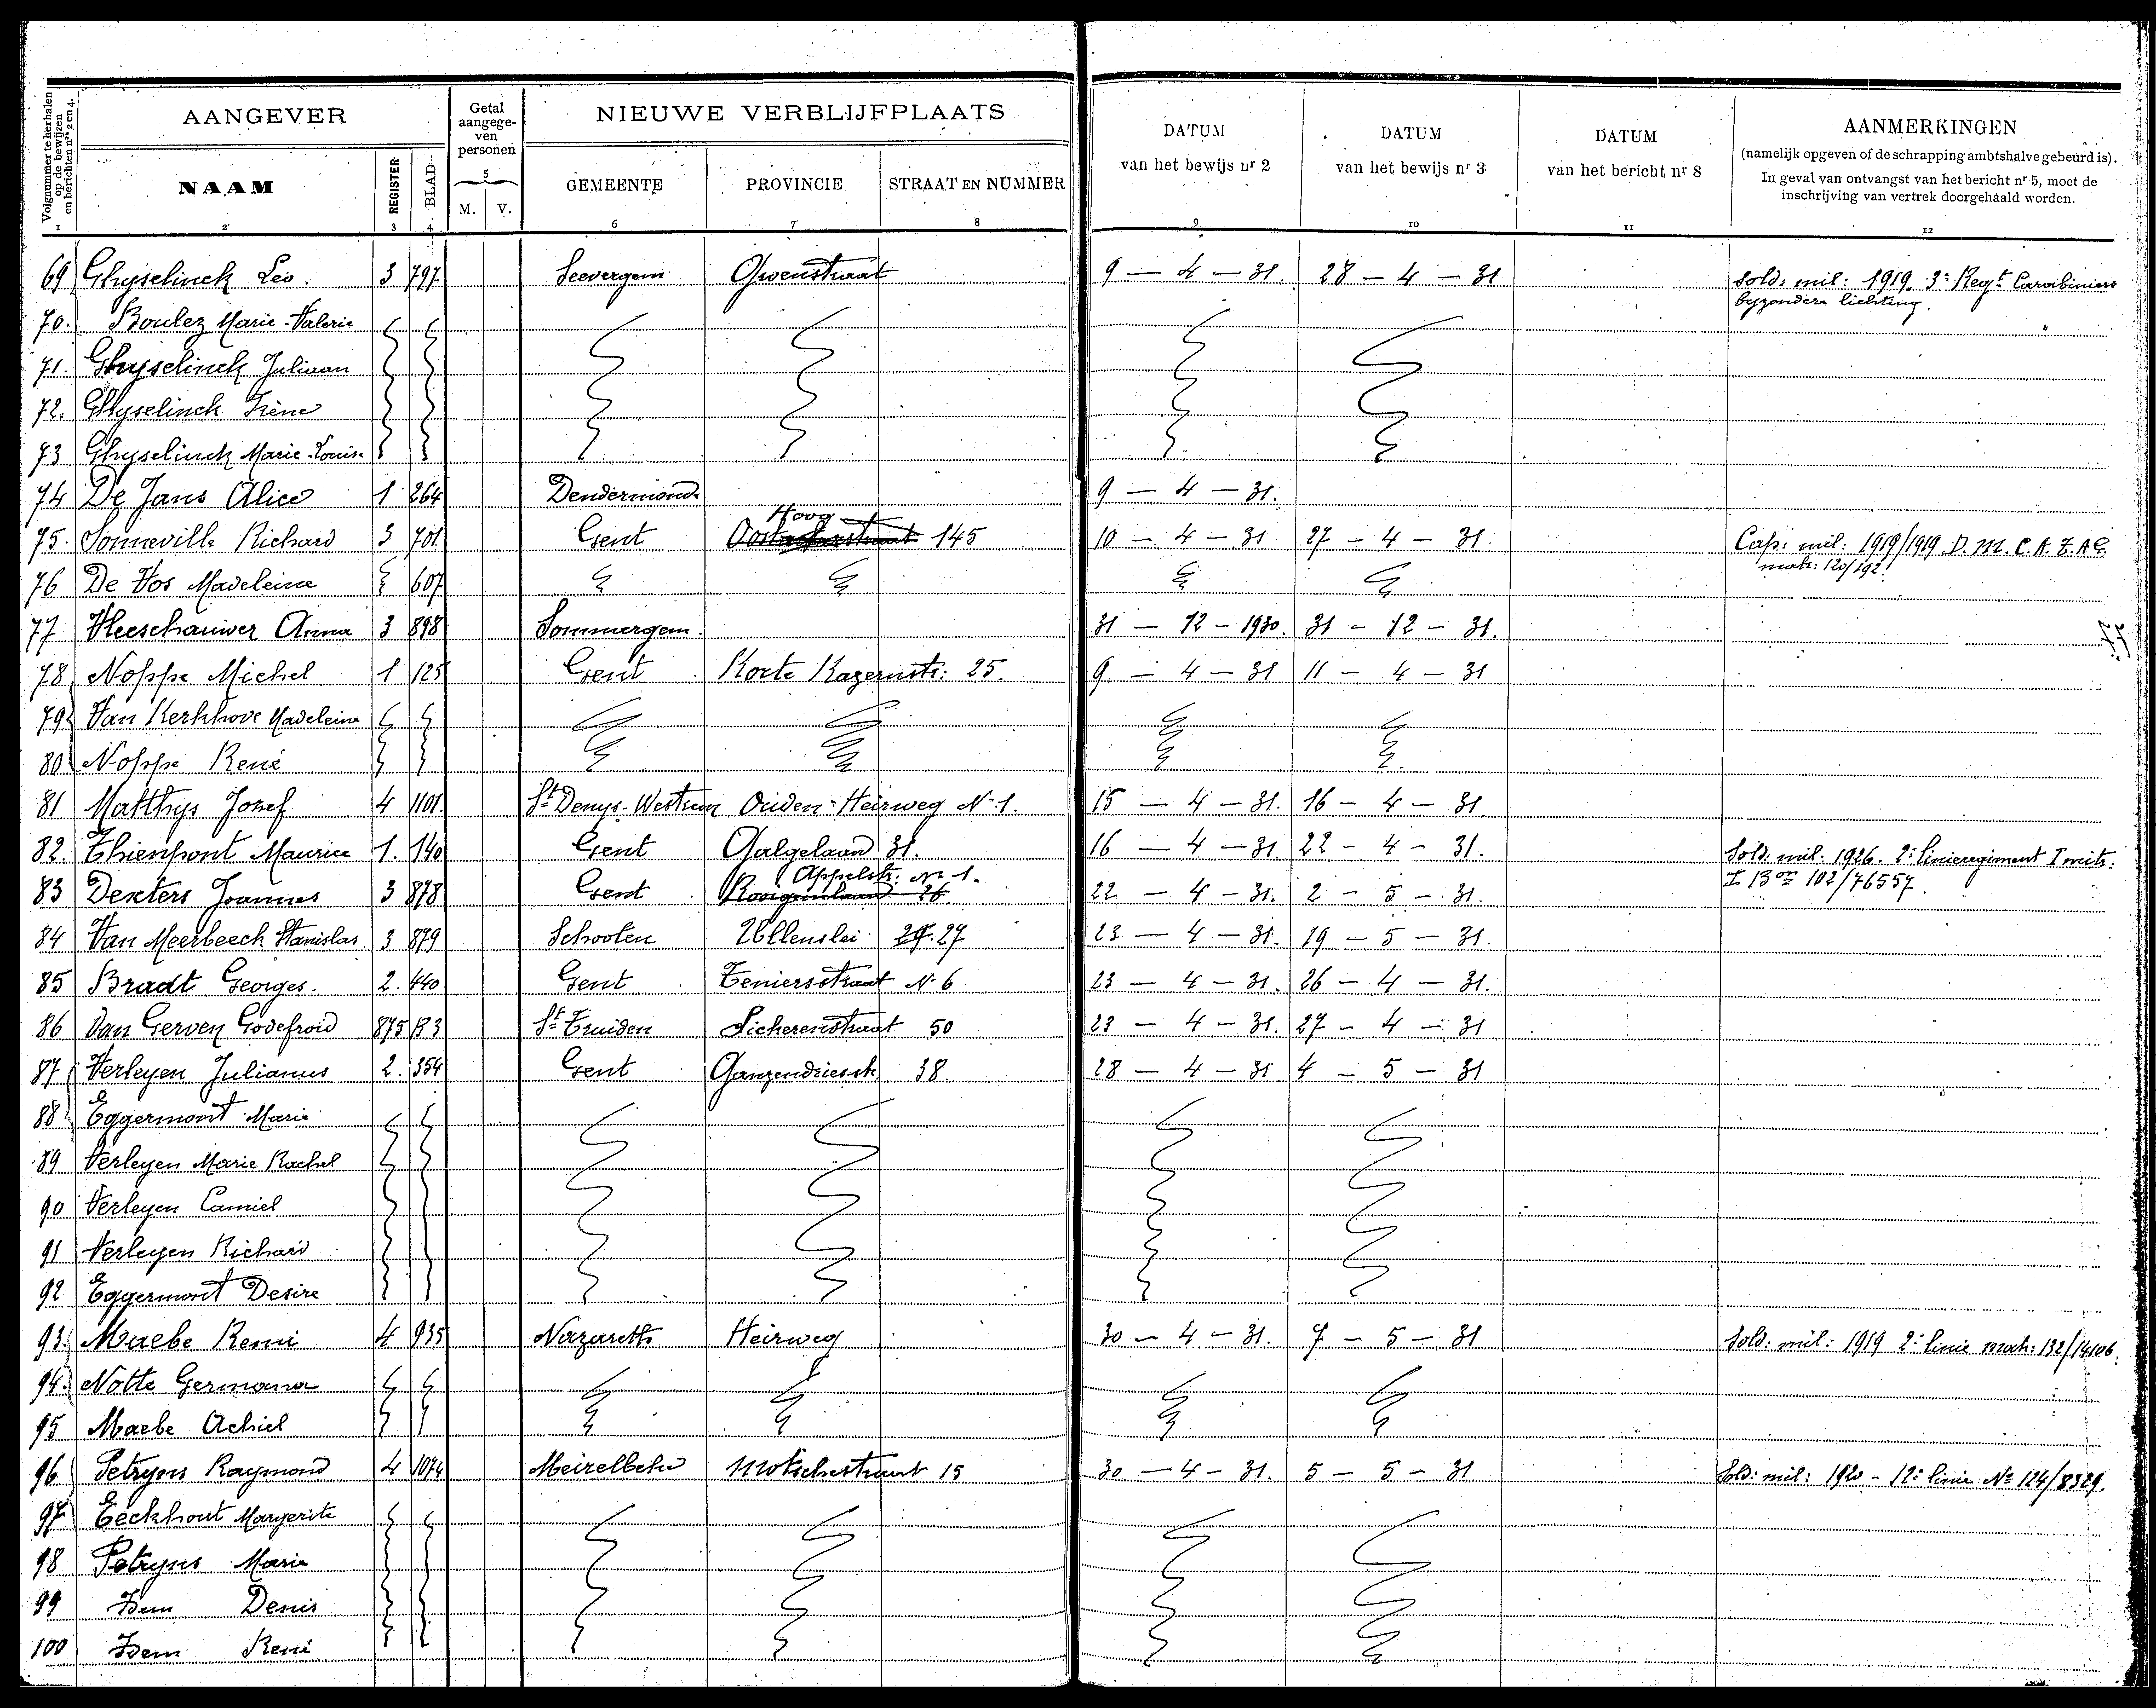 Volgnummer te herhalen op de bewijzen en berichten nrs 2 en 4.
AANGEVER
Getal aangege-ven personen
NIEUWE VERBLIJFPLAATS
DATUM van het bewijs nr 2
DATUM van het bewijs nr 3
DATUM van het bericht nr 8
AANMERKINGEN
(namelijk opgeven of de schrapping ambtshalve gebeurd is).
In geval van ontvangst van het bericht nr 5, moet de
inschrijving van vertrek doorgehaald worden.
NAAM REGISTER BLAD 5 M. V. GEMEENTE PROVINCIE STRAAT EN NUMMER
1 2 3 4 6 7 8 9 10 11 12
69 Ghyselinck Leo. 3 797 Seevergem 9 - 4 - 31. 28 - 4 - 31 Sold: mil: 1919. 3e Regt Carabiniers
byzondere lichting.
70. Boulez Marie-Valerie
71. Ghyselinck Juliaan
72. Ghyselinck Irène
73 Ghyselinck Marie-Louise
74 De Jans Alice 1 264 Dendermonde 9 - 4 - 31.
Hoog
75. Sonneville Richard 3 701 Gent 145 10 - 4 - 31 27 - 4 - 31. Cap: mil: 1919/1919 D. M. C. A. Z. A G.
matr: 120/192.
76 De Vos Madeleine 607
77 Vleeschauwer Anna 3 898 Sommergem. 31 - 12 - 1930. 31 - 12 - 31.
78 Noppe Michel 1 125 Gent Korte Kazernstr: 25. 9. - 4 - 31 11 - 4 - 31
79 Van Kerkhove Madeleine
80 Noppe René
81 Matthys Jozef 4 1101. St Denys-Westrem Ouden-Heirweg N-1. 15 - 4 - 31. 16 - 4 - 31
82. Thienpont Maurice 1. 140 Gent Galgelaan 31. 16 - 4 - 31. 22 - 4 - 31. Sold: mil: 1926. 2e linieregiment I mitr:
I Bon 102/76557.
Appelstr: No 1.
83 Dexters Joannes 3 878 Gent Rooigemlaan 26 22 - 4 - 31. 2 - 5 - 31.
84 Van Meerbeeck Stanislas 3 879 Schooten 27 23 - 4 - 31. 19 - 5 - 31.
85 Bradt Georges. 2. 440 Gent Teniersstraat N-6 23 - 4 - 31. 26 - 4 - 31.
86 Van Gerven Godefroid 875 R3 St Truiden Licherenstraat 50 23 - 4 - 31. 27 - 4 - 31
87 Verleyen Julianus 2. 354 Gent Ganzendriesstr. 38. 28 - 4 - 31 4 - 5 - 31
88 Eggermont Marie
89 Verleyen Marie Rachel
90 Verleyen Camiel
91 Verleyen Richard
92 Eggermont Desire
93. Maebe Remi 4 935 Nazareth Heirweg 30 - 4 - 31. 7 - 5 - 31 Sold: mil: 1919 2e linie matr: 132/14106.
94. Notte Germana
95 Maebe Achiel
96 Petryns Raymond 4 1074 Meirelbeke 15 30 - 4 - 31. 5 - 5 - 31 Sold: mil: 1920 - 12e linie No 124/8329.
97 Eeckhout Margerite
98 Petryns Marie
99 Idem Denis
100 Idem René